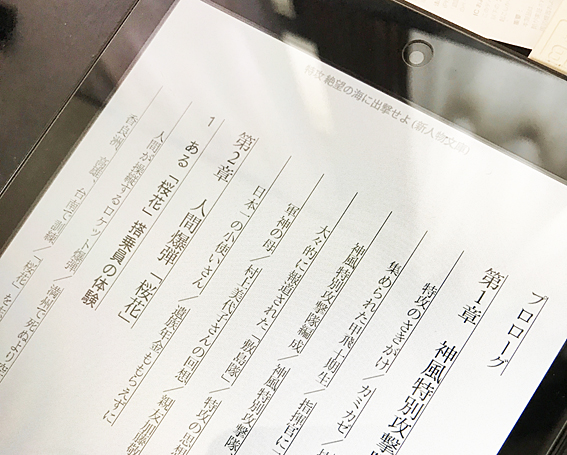 特攻絶望の海に出撃せよ（新人物文庫）
プロローグ
第1章　神風特別攻撃
特攻のさきがけ／カミカゼ／
集められた甲飛十期生／指揮官に
神風特別攻撃隊編成／神風特別攻撃隊
大々的に報道された「敷島隊」／特攻の思想
軍神の母／村上美代子さんの回想／親友加藤
日本一の小使いさん／遺族年金ももらえずに
第2章　人間爆弾「桜花」
1　ある「桜花」搭乗員の体験
人間が操縦するロケット爆弾／満州で死ぬより
香良洲、台南で訓練／「桜花」を